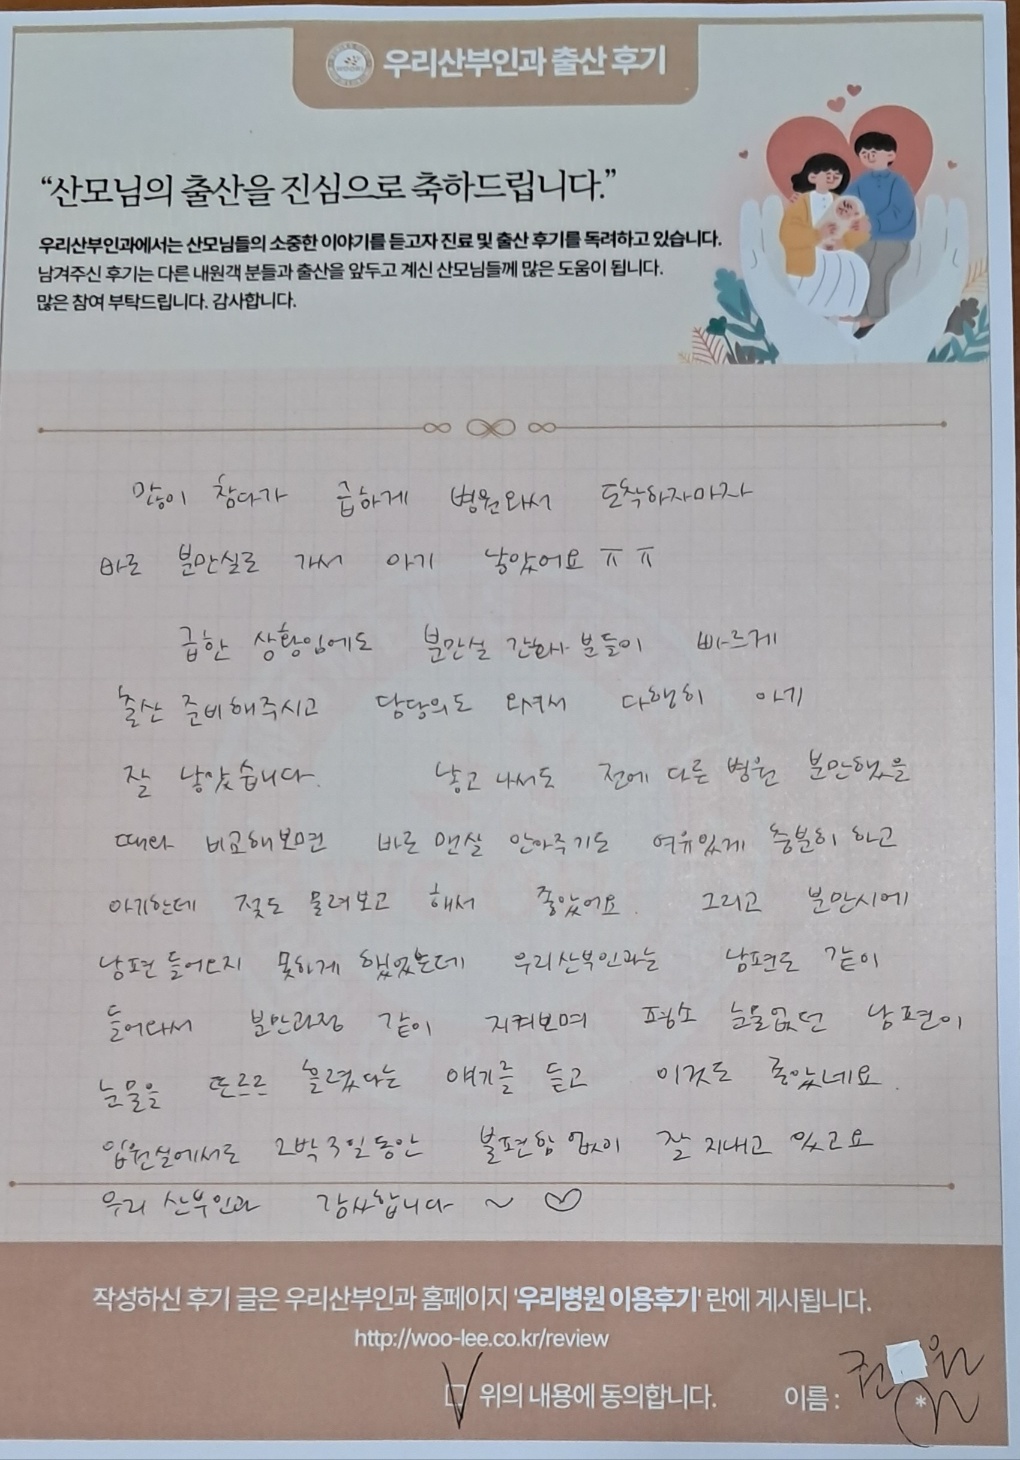 우리산부인과 출산 후기
“산모님의 출산을 진심으로 축하드립니다.”
우리산부인과에서는 산모님들의 소중한 이야기를 듣고자 진료 및 출산 후기를 독려하고 있습니다.
남겨주신 후기는 다른 내원객 분들과 출산을 앞두고 계신 산모님들께 많은 도움이 됩니다.
많은 참여 부탁드립니다. 감사합니다.
많이 참다가 급하게 병원와서 도착하자마자
바로 분만실로 가서 아기 낳았어요 ㅠㅠ
급한 상황임에도 분만실 간호사 분들이 빠르게
출산 준비해주시고 담당의도 와서 다행히 아기
잘 낳았습니다. 낳고 나서도 전에 다른 병원 분만했을
때와 비교해보면 바로 맨살 안아주기도 여유있게 충분히 하고
아기한테 젖도 물려보고 해서 좋았어요. 그리고 분만시에
남편 들어오지 못하게 했었는데 우리산부인과는 남편도 같이
들어와서 분만과정 같이 지켜보며 평소 눈물없던 남편이
눈물을 또르르 흘렸다는 얘기를 듣고 이것도 좋았네요.
입원실에서도 2박 3일동안 불편함 없이 잘 지내고 있고요
우리 산부인과 감사합니다 ~ ♡
작성하신 후기 글은 우리산부인과 홈페이지 '우리병원 이용후기' 란에 게시됩니다.
http://woo-lee.co.kr/review
위의 내용에 동의합니다. 이름 : 권 원